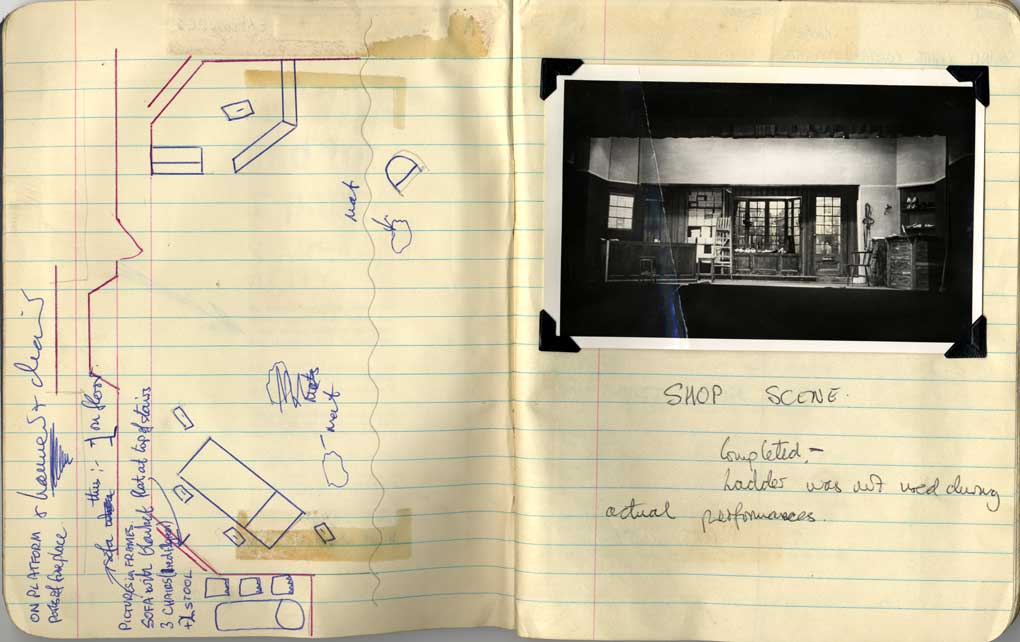 ON PLATFORM &
parts of fireplace
sofa this :- on floor
PICTURES IN FRAMES
SOFA with blanket flat at top of stairs
3 CHAIRS
+ 2 STOOL
mat
mat
SHOP SCENE.
Completed.-
Ladder was not used during
actual performances.